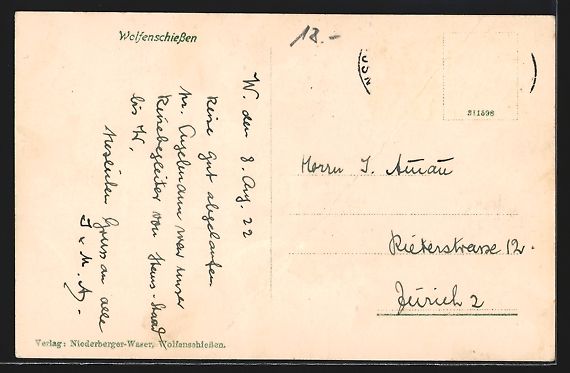 Wolfenschießen
18.-
W. den 8. Aug. 22
Reise gut abgelaufen
Hr. Engelmann war unser
Reisebegleiter von Stans-
bis W.
Gruss an alle
J. & M. A.
Herrn J. Aunau
Rieterstrasse 12.
Zürich 2
311598
Verlag: Niederberger-Waser, Wolfenschießen.